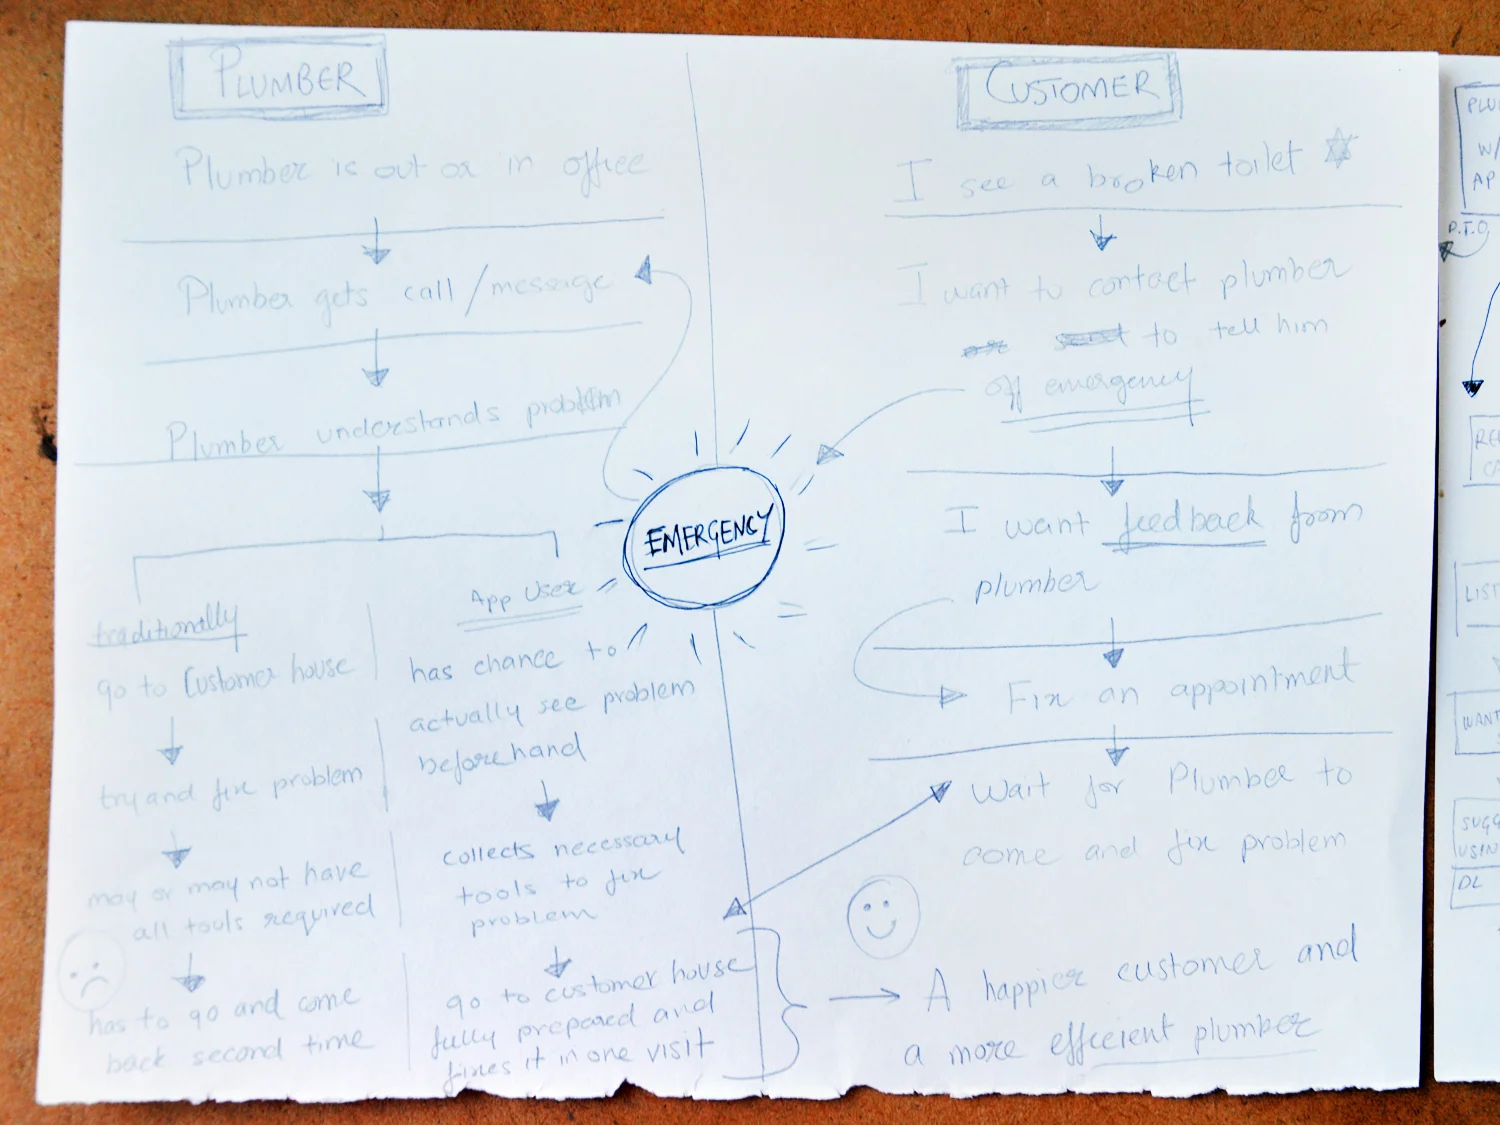 PLUMBER
Plumber is out or in office
Plumber gets call/message
Plumber understands problem
traditionally
go to Customer house
try and fix problem
may or may not have
all tools required
has to go and come
back second time
App User
has chance to
actually see problem
beforehand
collects necessary
tools to fix
problem
go to customer house
fully prepared and
fixes it in one visit
EMERGENCY
CUSTOMER
I see a broken toilet
I want to contact plumber
to tell him
off emergency
I want feedback from
plumber
Fix an appointment
Wait for Plumber to
come and fix problem
A happier customer and
a more efficient plumber
W/
AP
P.T.O
LIST
WANT
DL